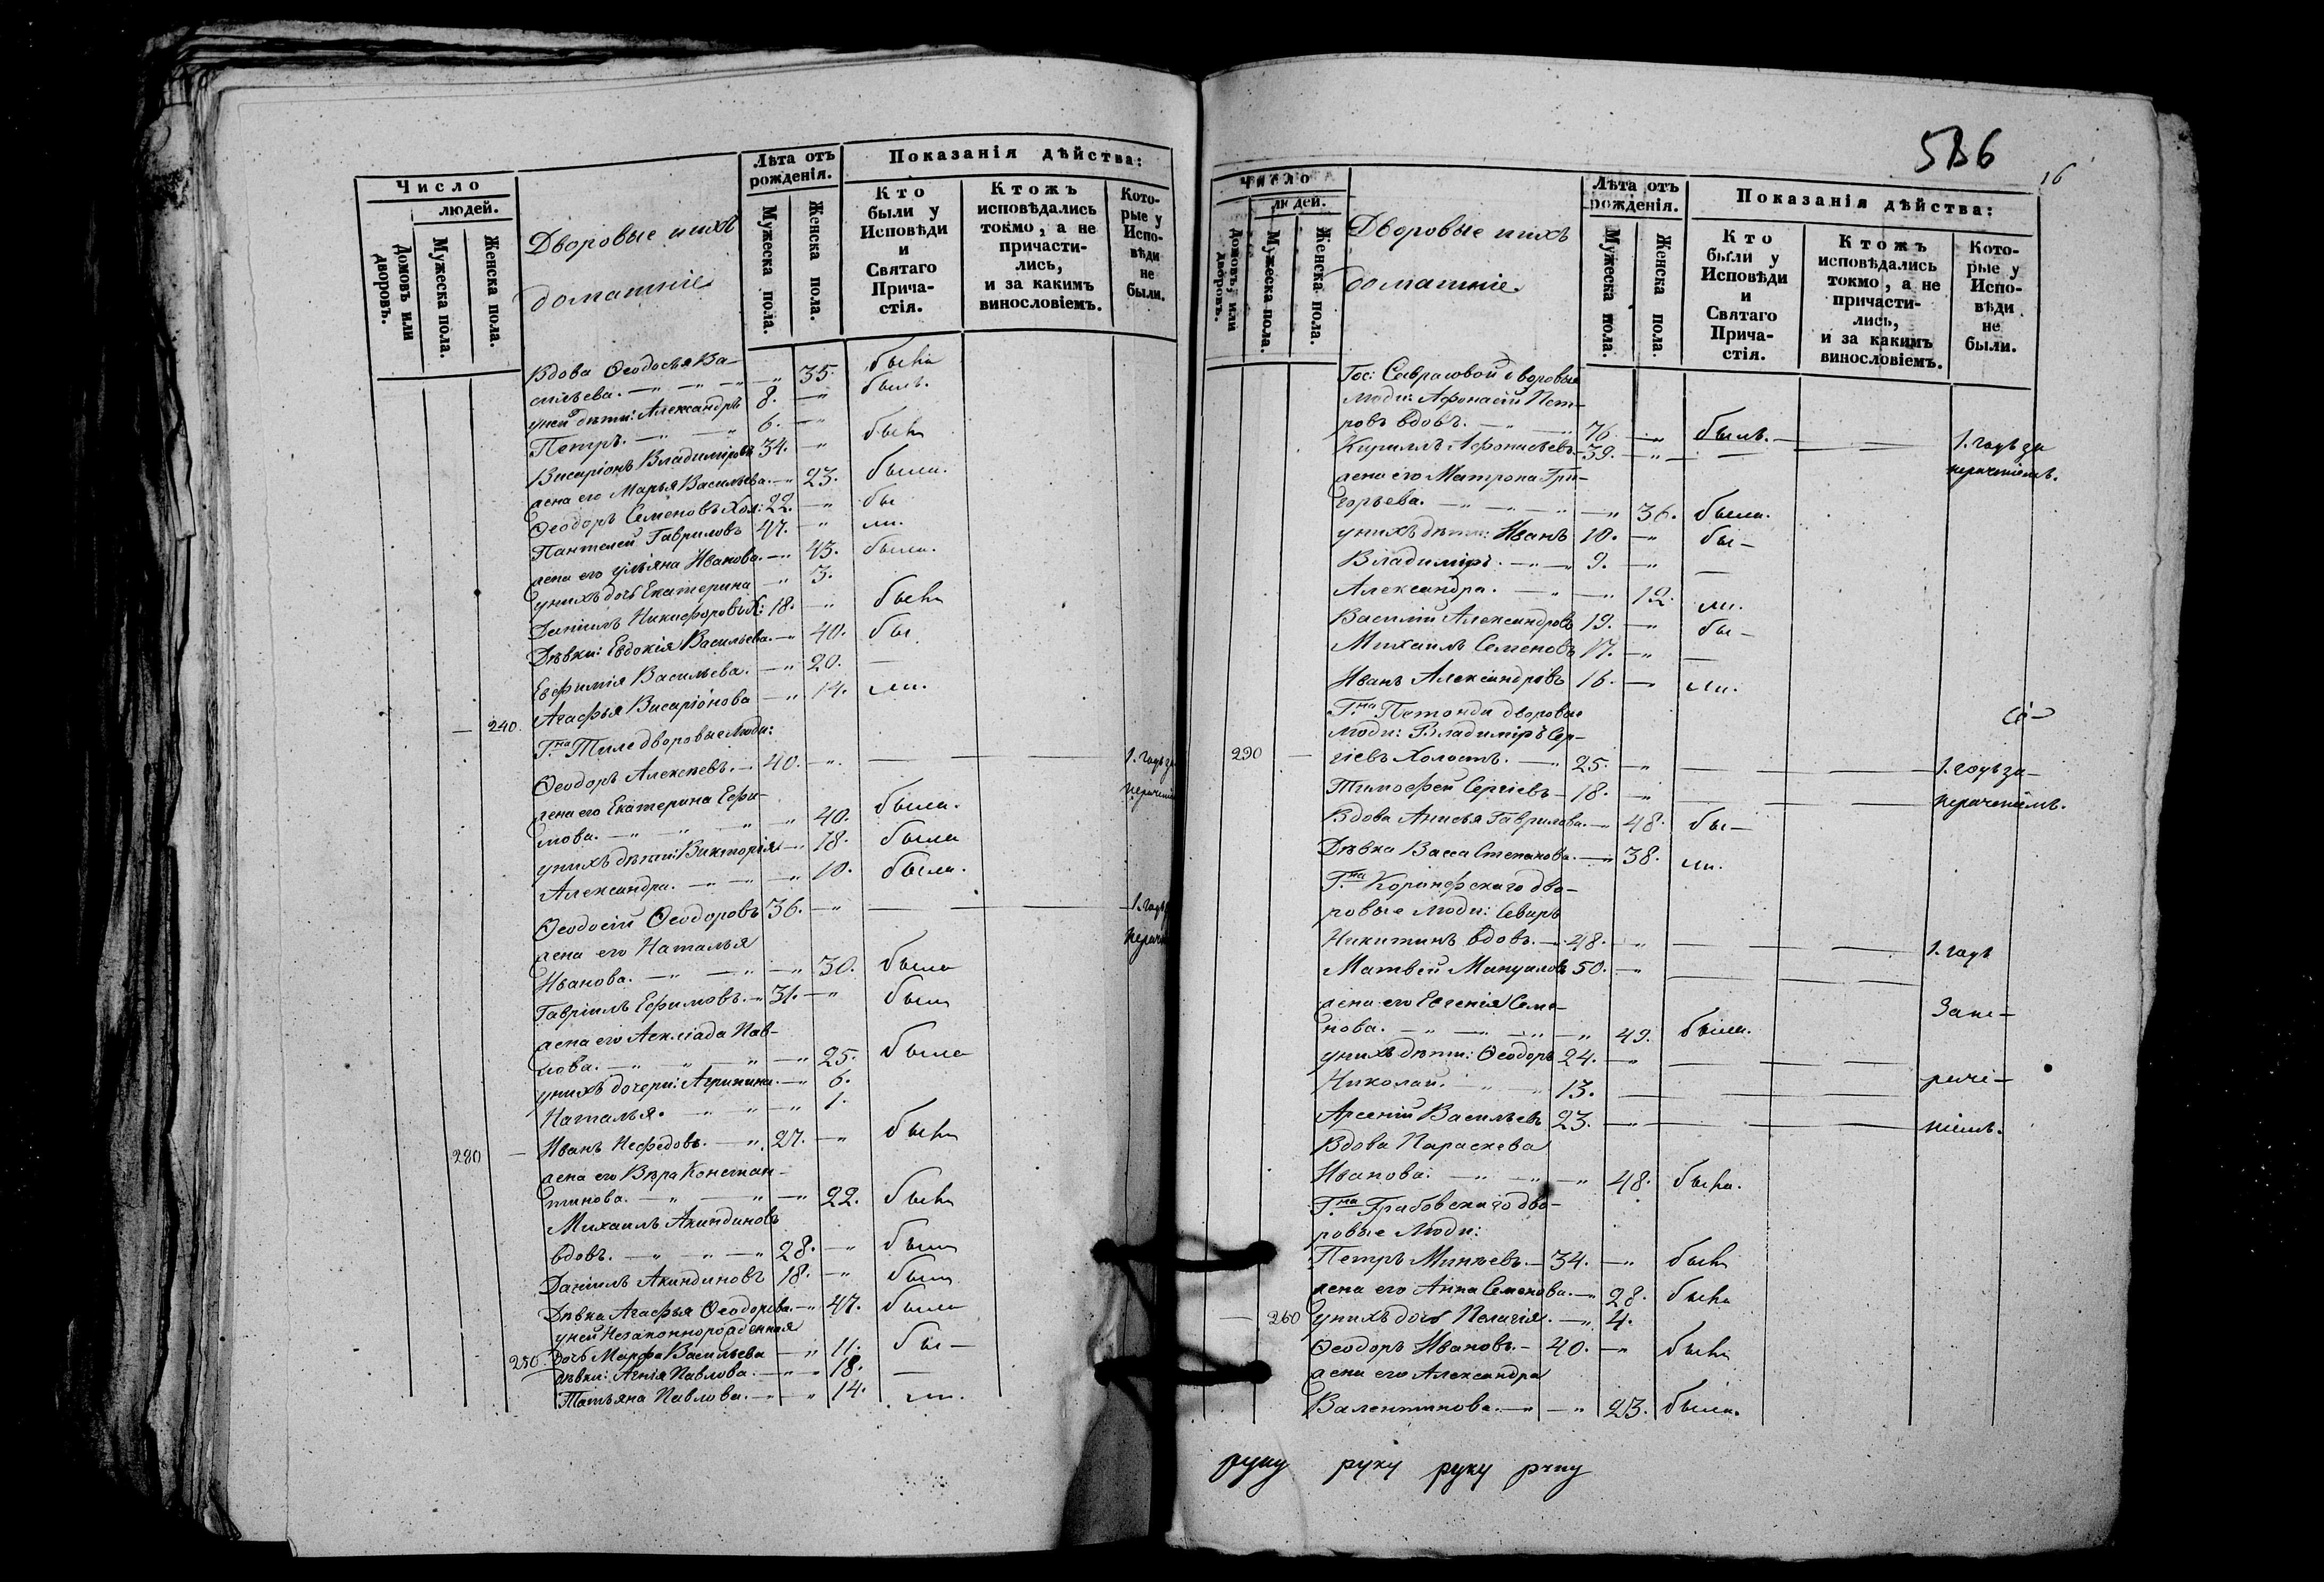 Число
людей.
Домовъ или дворовъ.
Мужеска пола.
Женска пола.
Дворовые ихъ
домашніе
Лѣта отъ рожденія.
Мужеска пола.
Женска пола.
Показанія дѣйства:
Кто были у Исповѣди и Святаго Прича-стія.
Ктожъ исповѣдались токмо, а не причасти-лись, и за какимъ винословіемъ.
Кото-рые у Испо-вѣди не были.
Вдова Ѳеодосья Ва-
сильева. 35. была
у ней дѣти: Александръ 8. былъ.
Петръ. 6.
Висаріонъ Владиміровъ 34. былъ
жена его Марья Васильева. 23. была.
Ѳеодоръ Семеновъ Хол: 22. бы
Пантелей Гавриловъ 47. ли.
жена его Ульяна Иванова. 43. была.
у нихъ дочь Екатерина 3.
Даніилъ Никифоровъ Х: 18. былъ
Дѣвки: Евдокія Васильева. 40. бы
Евфимія Васильева. 20. —
240. Агафья Висаріонова 14. ли.
Г.на Тиле дворовые люди:
Ѳеодоръ Алексѣевъ. 40. 1. годъ за
жена его Екатерина Ефи- нераченіемъ
мова. 40. была.
у нихъ дѣти: Викторія 18. была
Александра. 10. была.
Ѳеодосій Ѳеодоровъ 36. 1. годъ
жена его Наталья
Иванова. 30. была
Гавріилъ Ефимовъ. 31. былъ
жена его Асклiада Пав-
лова. 25. была
у нихъ дочери: Агрипина. 6.
Наталья. 1.
280 Иванъ Нефедовъ. 27. былъ
жена его Вѣра Констан-
тинова. 22. была
Михаилъ Акиндиновъ
вдовъ. 28. былъ
Даніилъ Акиндиновъ 18. былъ
Дѣвка Агафья Ѳеодорова. 47. была
у ней Незаконнорожденная
250. дочь Марфа Васильева 11. бы—
дѣвки: Агнія Павлова. 18. —
Татьяна Павлова. 14. ли.
586
16
Число
людей.
Домовъ, или дворовъ.
Мужеска пола.
Женска пола.
Дворовые ихъ
домашніе
Лѣта отъ рожденія.
Мужеска пола.
Женска пола.
Показанія дѣйства:
Кто были у Исповѣди и Святаго Прича-стія.
Ктожъ исповѣдались токмо, а не причасти-лись, и за какимъ винословіемъ.
Кото-рые у Испо-вѣди не были.
Гос: Саврасовой дворовые
люди: Афонасій Пет-
ровъ вдовъ. 76. былъ. 1. годъ за
Кириллъ Афонасьевъ 39. — нераченіемъ.
жена его Матрона Гри-
горьева. 36. была.
у нихъ дѣти: Иванъ 10. бы—
Владиміръ. 9. —
Александра. 12. ли.
Василій Александровъ 19. бы—
Михаилъ Семеновъ 17. —
Иванъ Александровъ 16. ли.
Г.на дворовые
люди: Владиміръ Сер-
290 гіевъ Холостъ. 25. 1. годъ за—
Тимофей Сергіевъ 18. нераченіемъ.
Вдова Анисья Гаврилова. 48. бы—
Дѣвка Васса Степанова. 38. ли.
Г.на Коринфскаго дво-
ровые люди:
Никитинъ вдовъ. 48. 1. годъ
Матвѣй Мануиловъ 50.
жена его Евгенія Семе-
нова. 49. была. За не—
у нихъ дѣти: Ѳеодоръ 24.
Николай. 13. раче—
Арсеній Васильевъ 23. ніемъ.
Вдова Параскева
Иванова. 48. была.
Г.на Грабовскаго дво-
ровые люди:
Петръ Минѣевъ. 34. былъ
жена его Анна Семенова. 28. была
260 у нихъ дочь Пелагія. 4.
Ѳеодоръ Ивановъ. 40. былъ
жена его Александра
Валентинова. 23. была.
руку руку руку руку